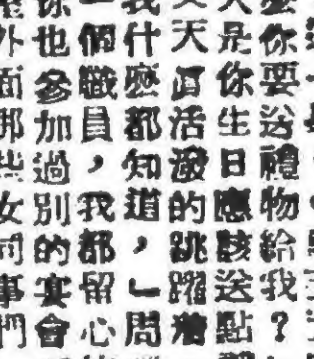 你要送禮物給我？
是你生日應該送點
天眞活潑的跳躍着
我什麼都知道，」問
一個職員，我都留心
你也參加過別的宴會
外面那些女同事們